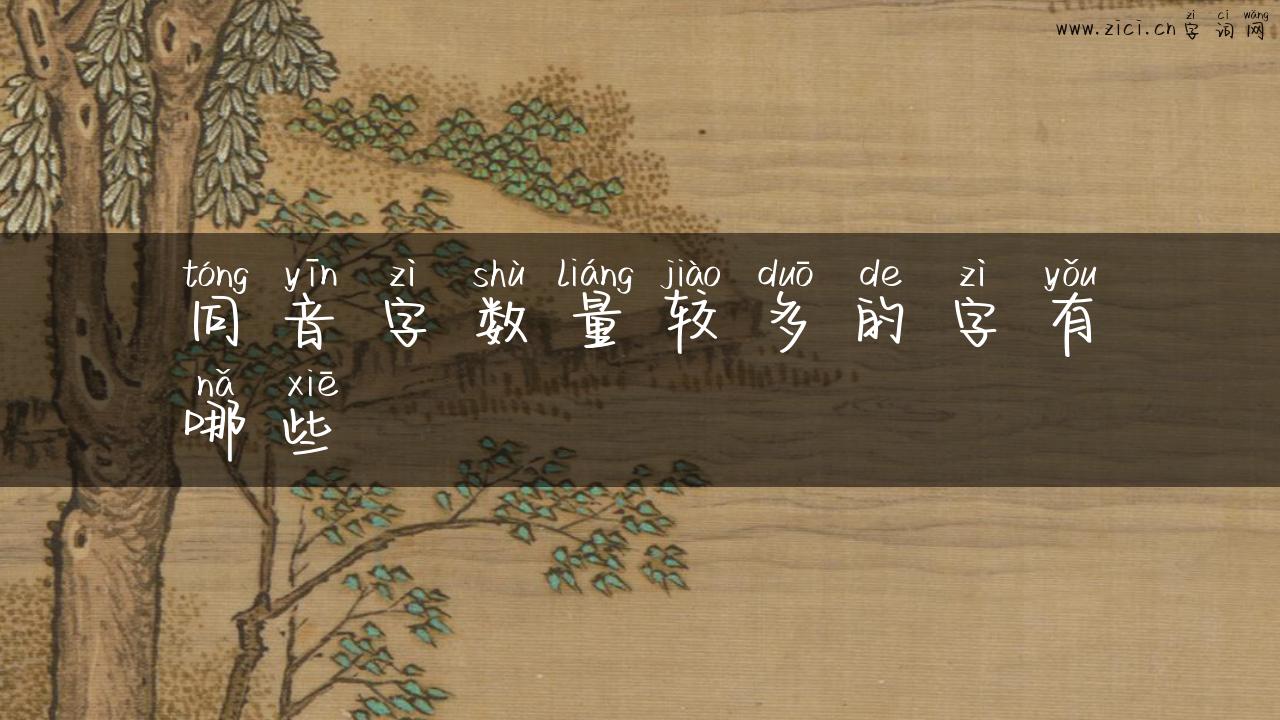 zì cí wǎng
www.zici.cn 字词网
tóng yīn zì shù liáng jiào duō de zì yǒu
同音字数量较多的字有
nǎ xiē
哪些